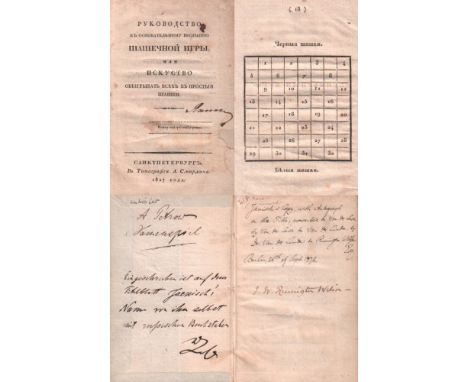 РУКОВОДСТВО
КЪ ОСНОВАТЕЛЬНОМУ ПОЗНАНІЮ
ШАШЕЧНОЙ ИГРЫ,
ИЛИ
ИСКУСТВО
ОБЫГРЫВАТЬ ВСѢХЪ ВЪ ПРОСТЫЯ
ШАШКИ.
САНКТПЕТЕРБУРГЪ,
Въ Типографіи А. Смирдина.
1827 года.
( 18 )
Черныя шашки.
1 2 3 4
5 6 7 8
9 10 11 12
13 14 15 16
17 18 19 20
21 22 23 24
25 26 27 28
29 30 31 32
Бѣлыя шашки.
A. Petrow
Damenspiel
Eingeschrieben ist auf dem
Titelblatt Jaenisch's
Name von ihm selbst
mit russischen Buchstaben
Jaenisch's Copy, with Autograph
on the Title,
by Van der Linde to
Berlin 26th of Sept
J. W. Rimington Wilson